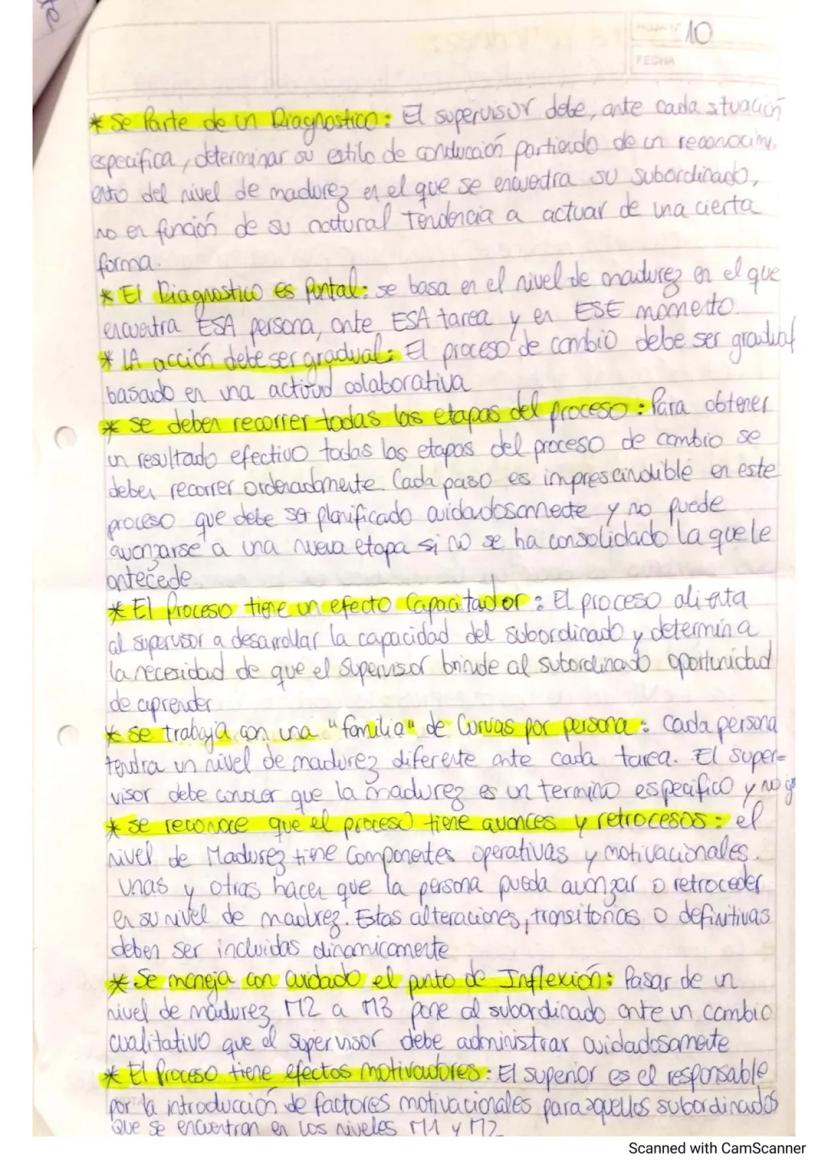 10
FECHA
* Se Parte de un Diagnostico: El supervisor debe, ante cada situación
especifica, determinar su estilo de conducción partiendo de un reconocimi
ento del nivel de madurez en el que se encuentra su subordinado,
no en función de su natural Tendencia a actuar de una cierta
forma.
* El Diagnostico es Puntal: se basa en el nivel de madurez en el que
encuentra ESA persona, ante ESA tarea y en ESE momento.
* LA acción debe ser gradual: El proceso de cambio debe ser gradual
basado en una actitud colaborativa
* se deben recorrer todas las etapas del proceso: Para obtener
un resultado efectivo todas las etapas del proceso de cambio se
deben recorrer ordenadamente. Cada paso es imprescindible en este
proceso que debe ser planificado cuidadosamente y no puede
avanzarse a una nueva etapa si no se ha consolidado la que le
antecede
* El Proceso tiene un efecto Capacitador: El proceso alienta
al supervisor a desarrollar la capacidad del subordinado y determina
la necesidad de que el supervisor brinde al subordinado oportunidad
de aprender
* se trabaja con una "familia" de Curvas por persona: cada persona
tendra un nivel de madurez diferente ante cada tarea. El super-
visor debe conocer que la madurez es un termino especifico y no g
* se reconoce que el proceso tiene avances y retrocesos: el
nivel de Madurez tiene Componentes operativas y motivacionales.
Unas y otras hacen que la persona pueda avanzar o retroceder
en su nivel de madurez. Estas alteraciones, transitorias o definitivas
deben ser incluidas dinamicamente
* Se maneja con cuidado el punto de Inflexión: Pasar de un
nivel de madurez M2 a M3 pone al subordinado ante un cambio
cualitativo que el supervisor debe administrar cuidadosamente
* El Proceso tiene efectos motivadores: El superior es el responsable
por la introducción de factores motivacionales para aquellos subordinados
que se encuentran en los niveles M1 y M2
Scanned with CamScanner